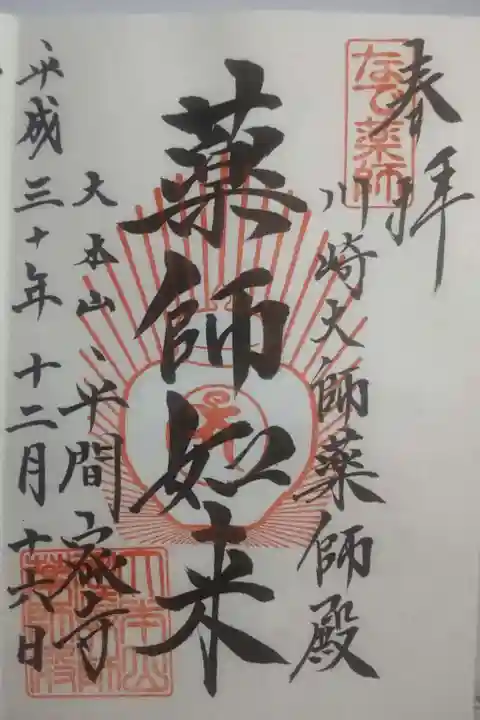 奉拝
なで薬師
川崎大師薬師殿
薬師如来
大本山平間寺
平成三十年十二月十六日